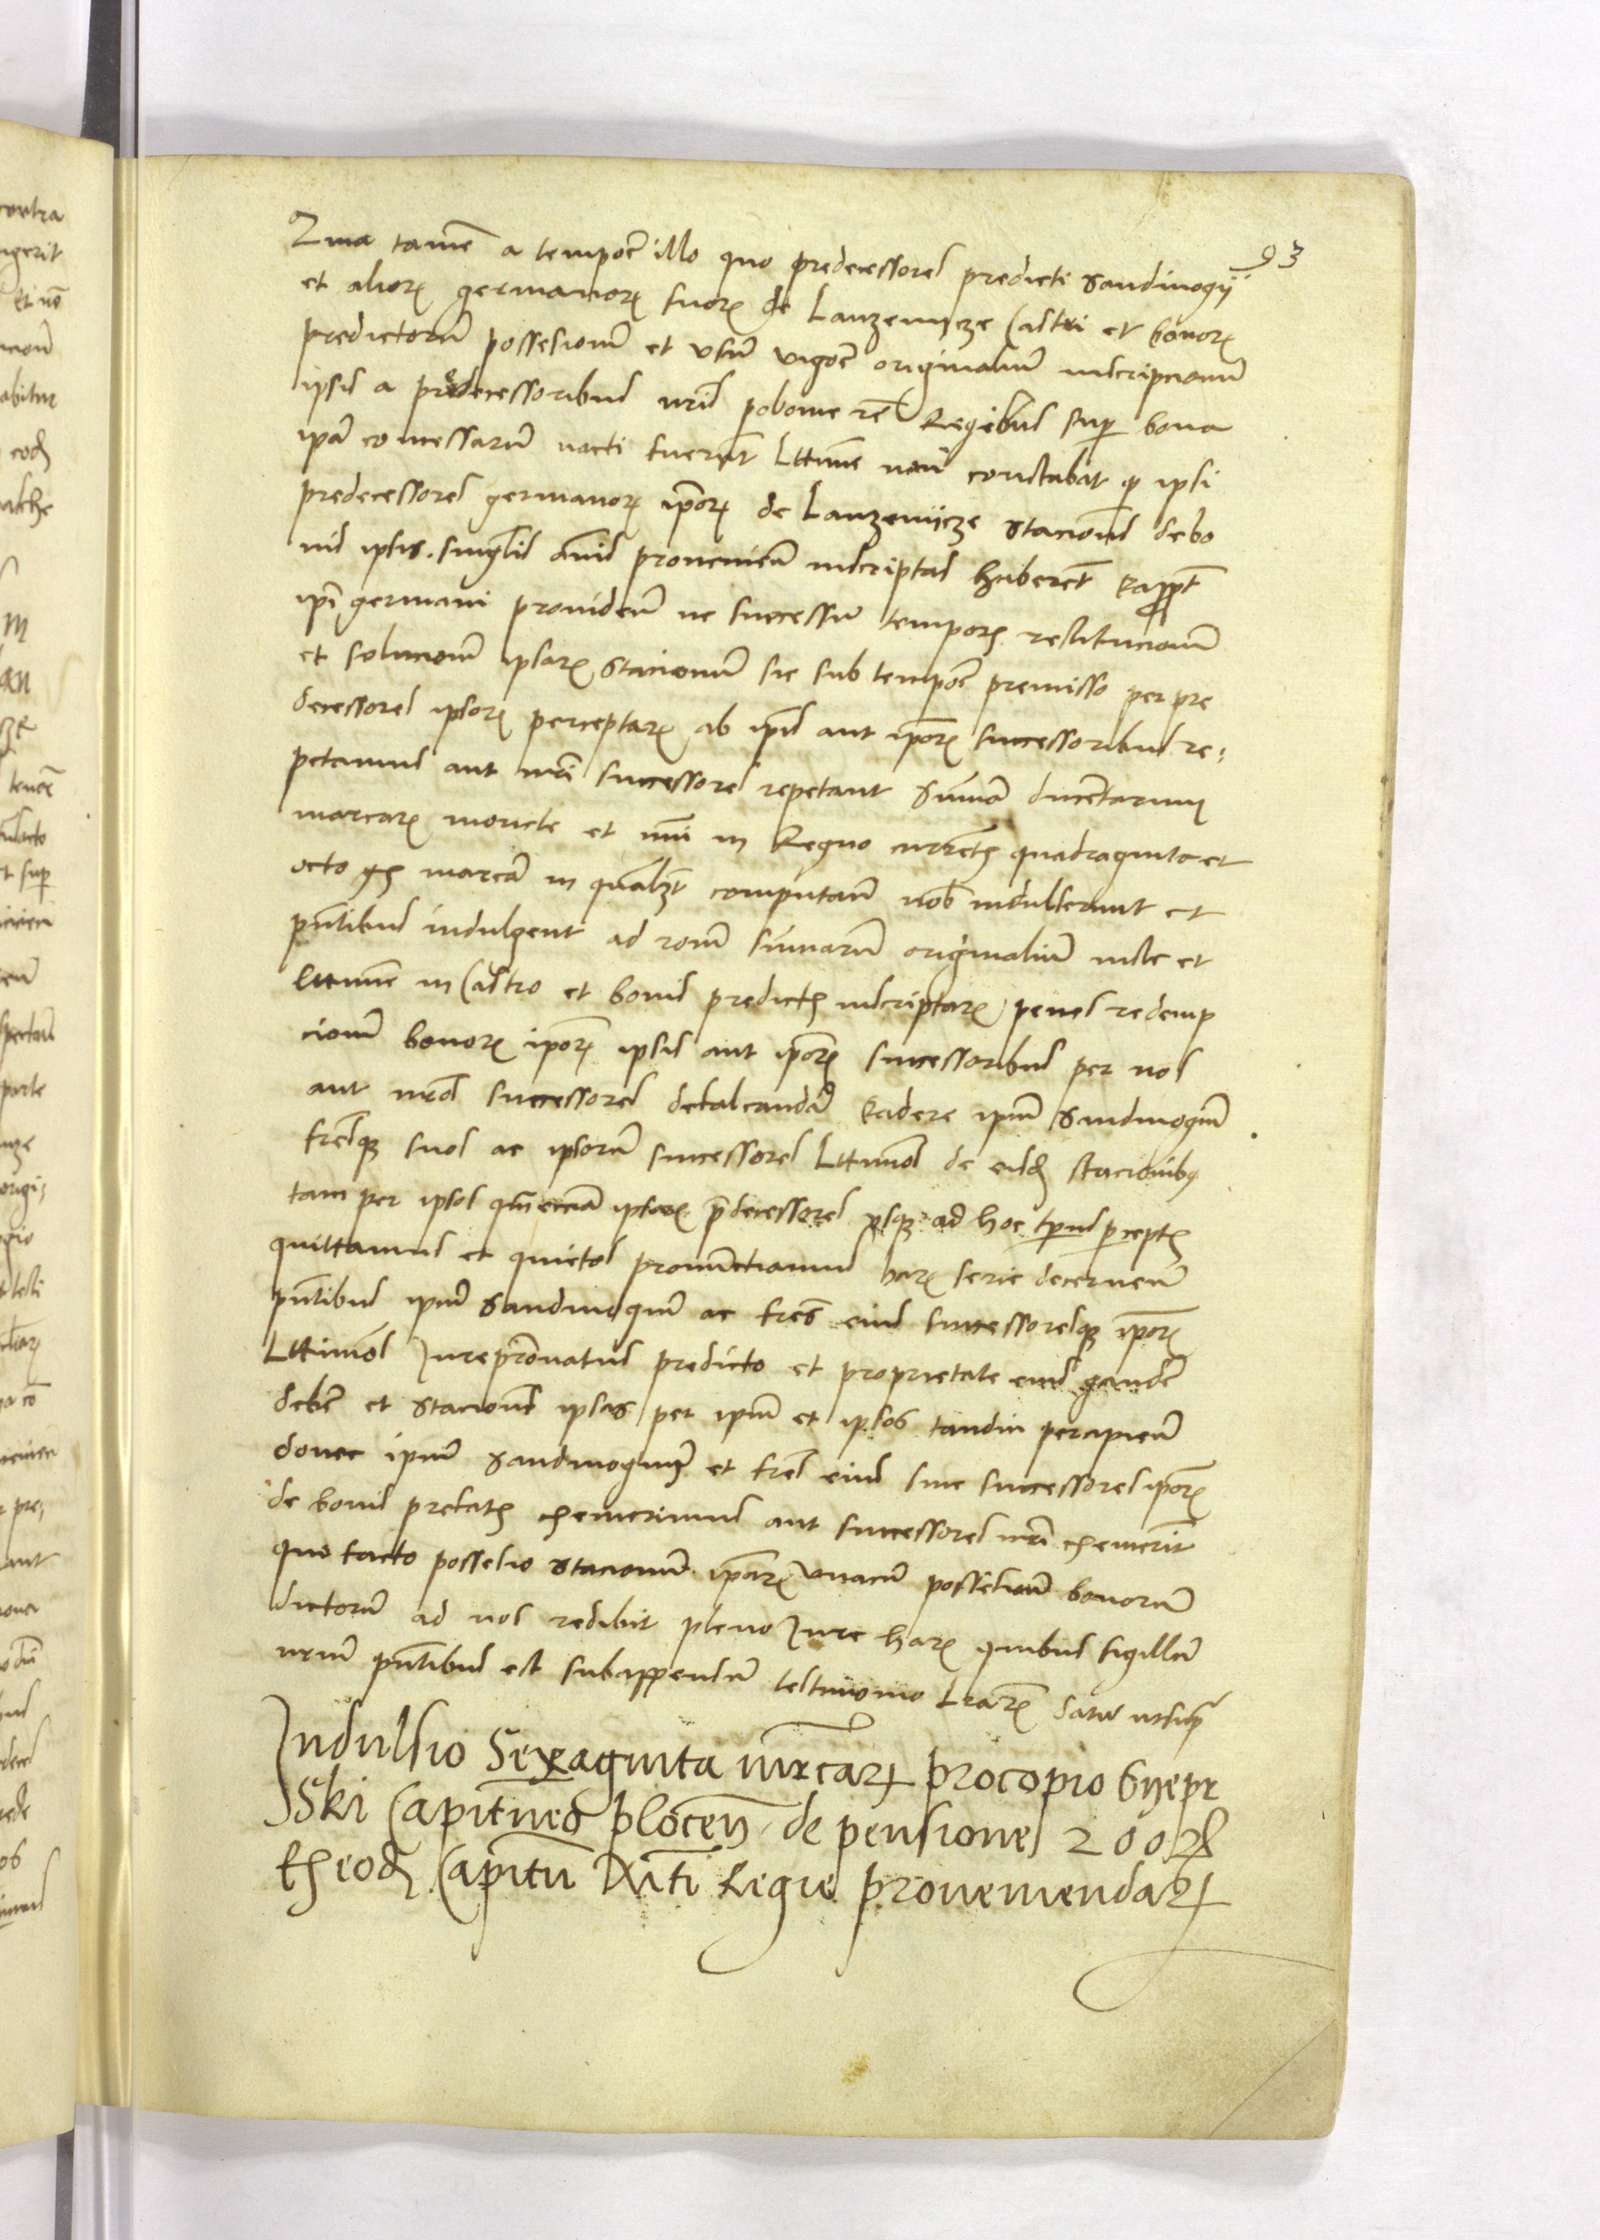 93
Quia tamen a tempore illo quo predecessores predicti Sandiuogij
et alior germanor suor de Lanzenijcze Castri et bonor
predictorum possesionem et usum vigore originalium inscripcionum
ipsis a predecessoribus nris pobone re Regibus sup bona
ipa concessarum nacti fuerunt lttime non constabat q ipsi
predecessores germanor ipor de Lanzenijcze staciones de bo
nis ipsis singlis annis proueniem inscriptas haberent
ipi germani prouidem ne successu tempor restitucionem
et solucionem ipsar stacionum sic sub tempore premisso per pre
decessores ipsor perceptar ab ipis aut ipor successoribus re
petamus aut nri successores repetant summam ducentarum
marcar monete et nui in Regno curren quadraginta et
octo gs marcam in qualzt computan nob indulserunt et
pntibus indulgent ad ronem summarum originalium iuste et
lttime in Castro et bonis predictis inscriptar penes redemp
cionem bonor ipor ipsis aut ipor successoribus per nos
aut nros successores defalcandam ipum Sandiuogium
fresq suos ac ipsorum successores Lttimos de eisd stacionibq
tam per ipsos qm eciam ipsor predecessores usq ad hoc tpus percept
quittamus et quietos pronunctiamus har serie decernen
pntibus ipum Sandiuogium ac fres eius successoresq ipor
Lttimos Jurepronatus predicto et proprietate eius gaudere
debere et staciones ipsas per ipum et ipsos tandiu percipiem
donec ipum Sandiuogium et fres eius siue successores ipor
de bonis prefatis exemerimus aut successores nri exemerint
quo facto possesio stacionum ipar unacum possesione bonorum
dictorum ad nos redibit pleno Jure har quibus sigillum
nrum pntibus est subappensum testimonio Lrar Datum utsup
Indulsio Sexaginta mrcar procopio Syepr
sski Capitneo plocen de pensione 200
exeod Capitu Mti Regie proueniendar